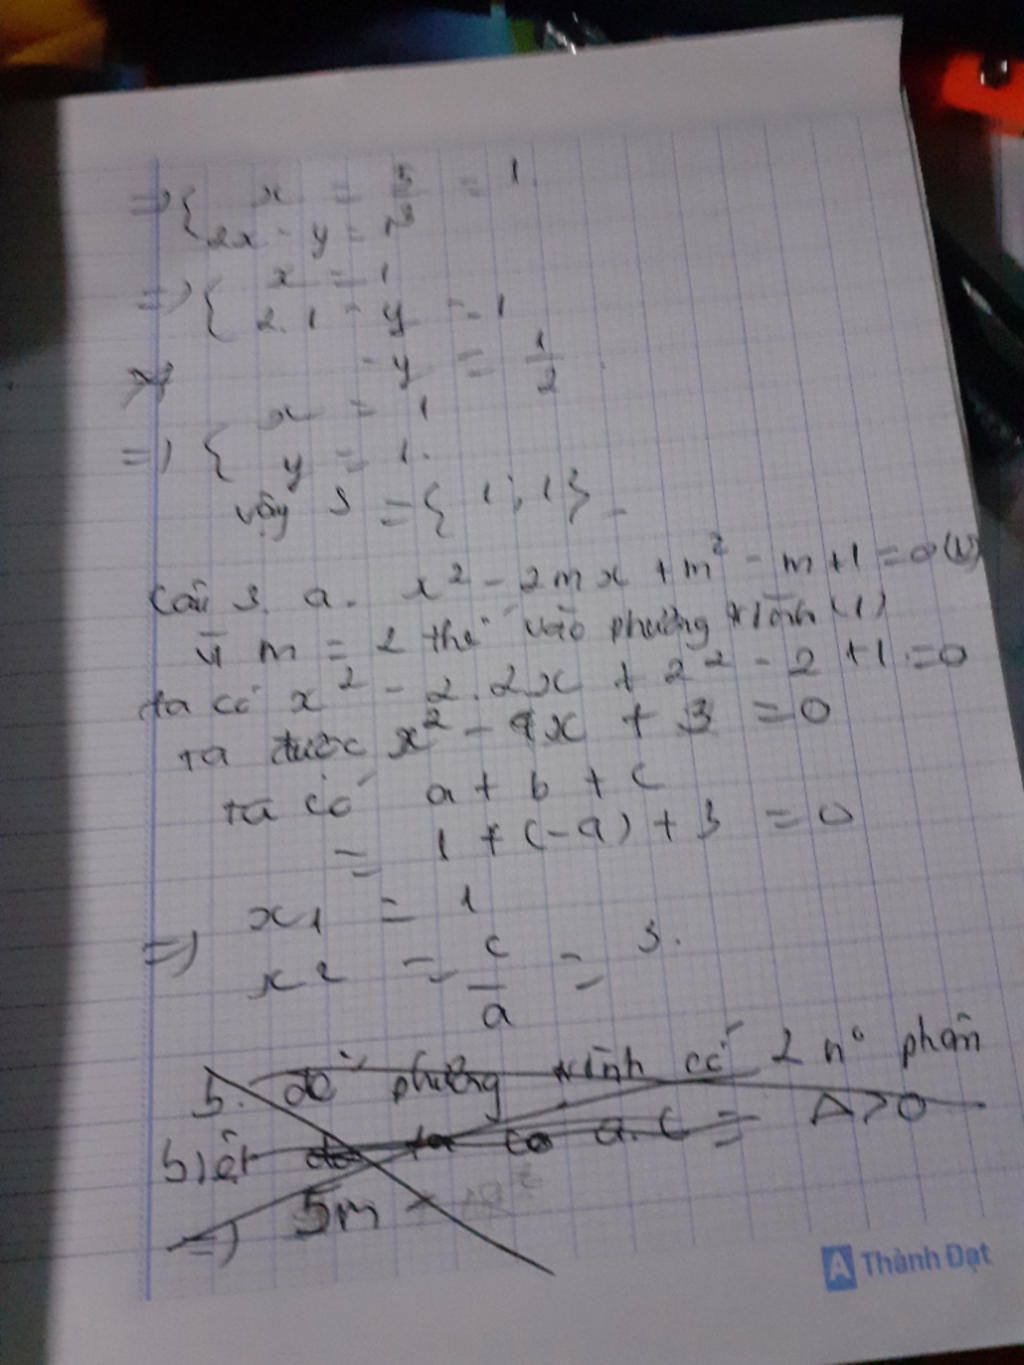 => { x = 5 = 1.
2x - y =
=> { x = 1
2.1 - y = 1
- y = 1/2.
=> { x = 1
y = 1.
vậy S = { 1 ; 1 }
Câu 3. a. x² - 2mx + m² - m + 1 = 0 (1)
Vì m = 2 thế vào phương trình (1)
ta có x² - 2.2x + 2² - 2 + 1 = 0
ta được x² - 4x + 3 = 0
ta có a + b + c
= 1 + (-4) + 3 = 0
=> x1 = 1
x2 = c/a = 3.
b. để phương trình có 2 n° phân
biệt a.c = Δ > 0
=> 5m -
Thành Đạt